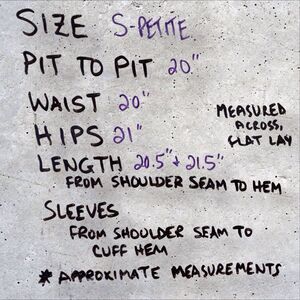 SIZE S-PETITE
PIT TO PIT 20"
WAIST 20"
HIPS 21"
MEASURED
ACROSS,
FLAT LAY
LENGTH 20.5" + 21.5"
FROM SHOULDER SEAM TO HEM
SLEEVES
FROM SHOULDER SEAM TO
CUFF HEM
* APPROXIMATE MEASUREMENTS